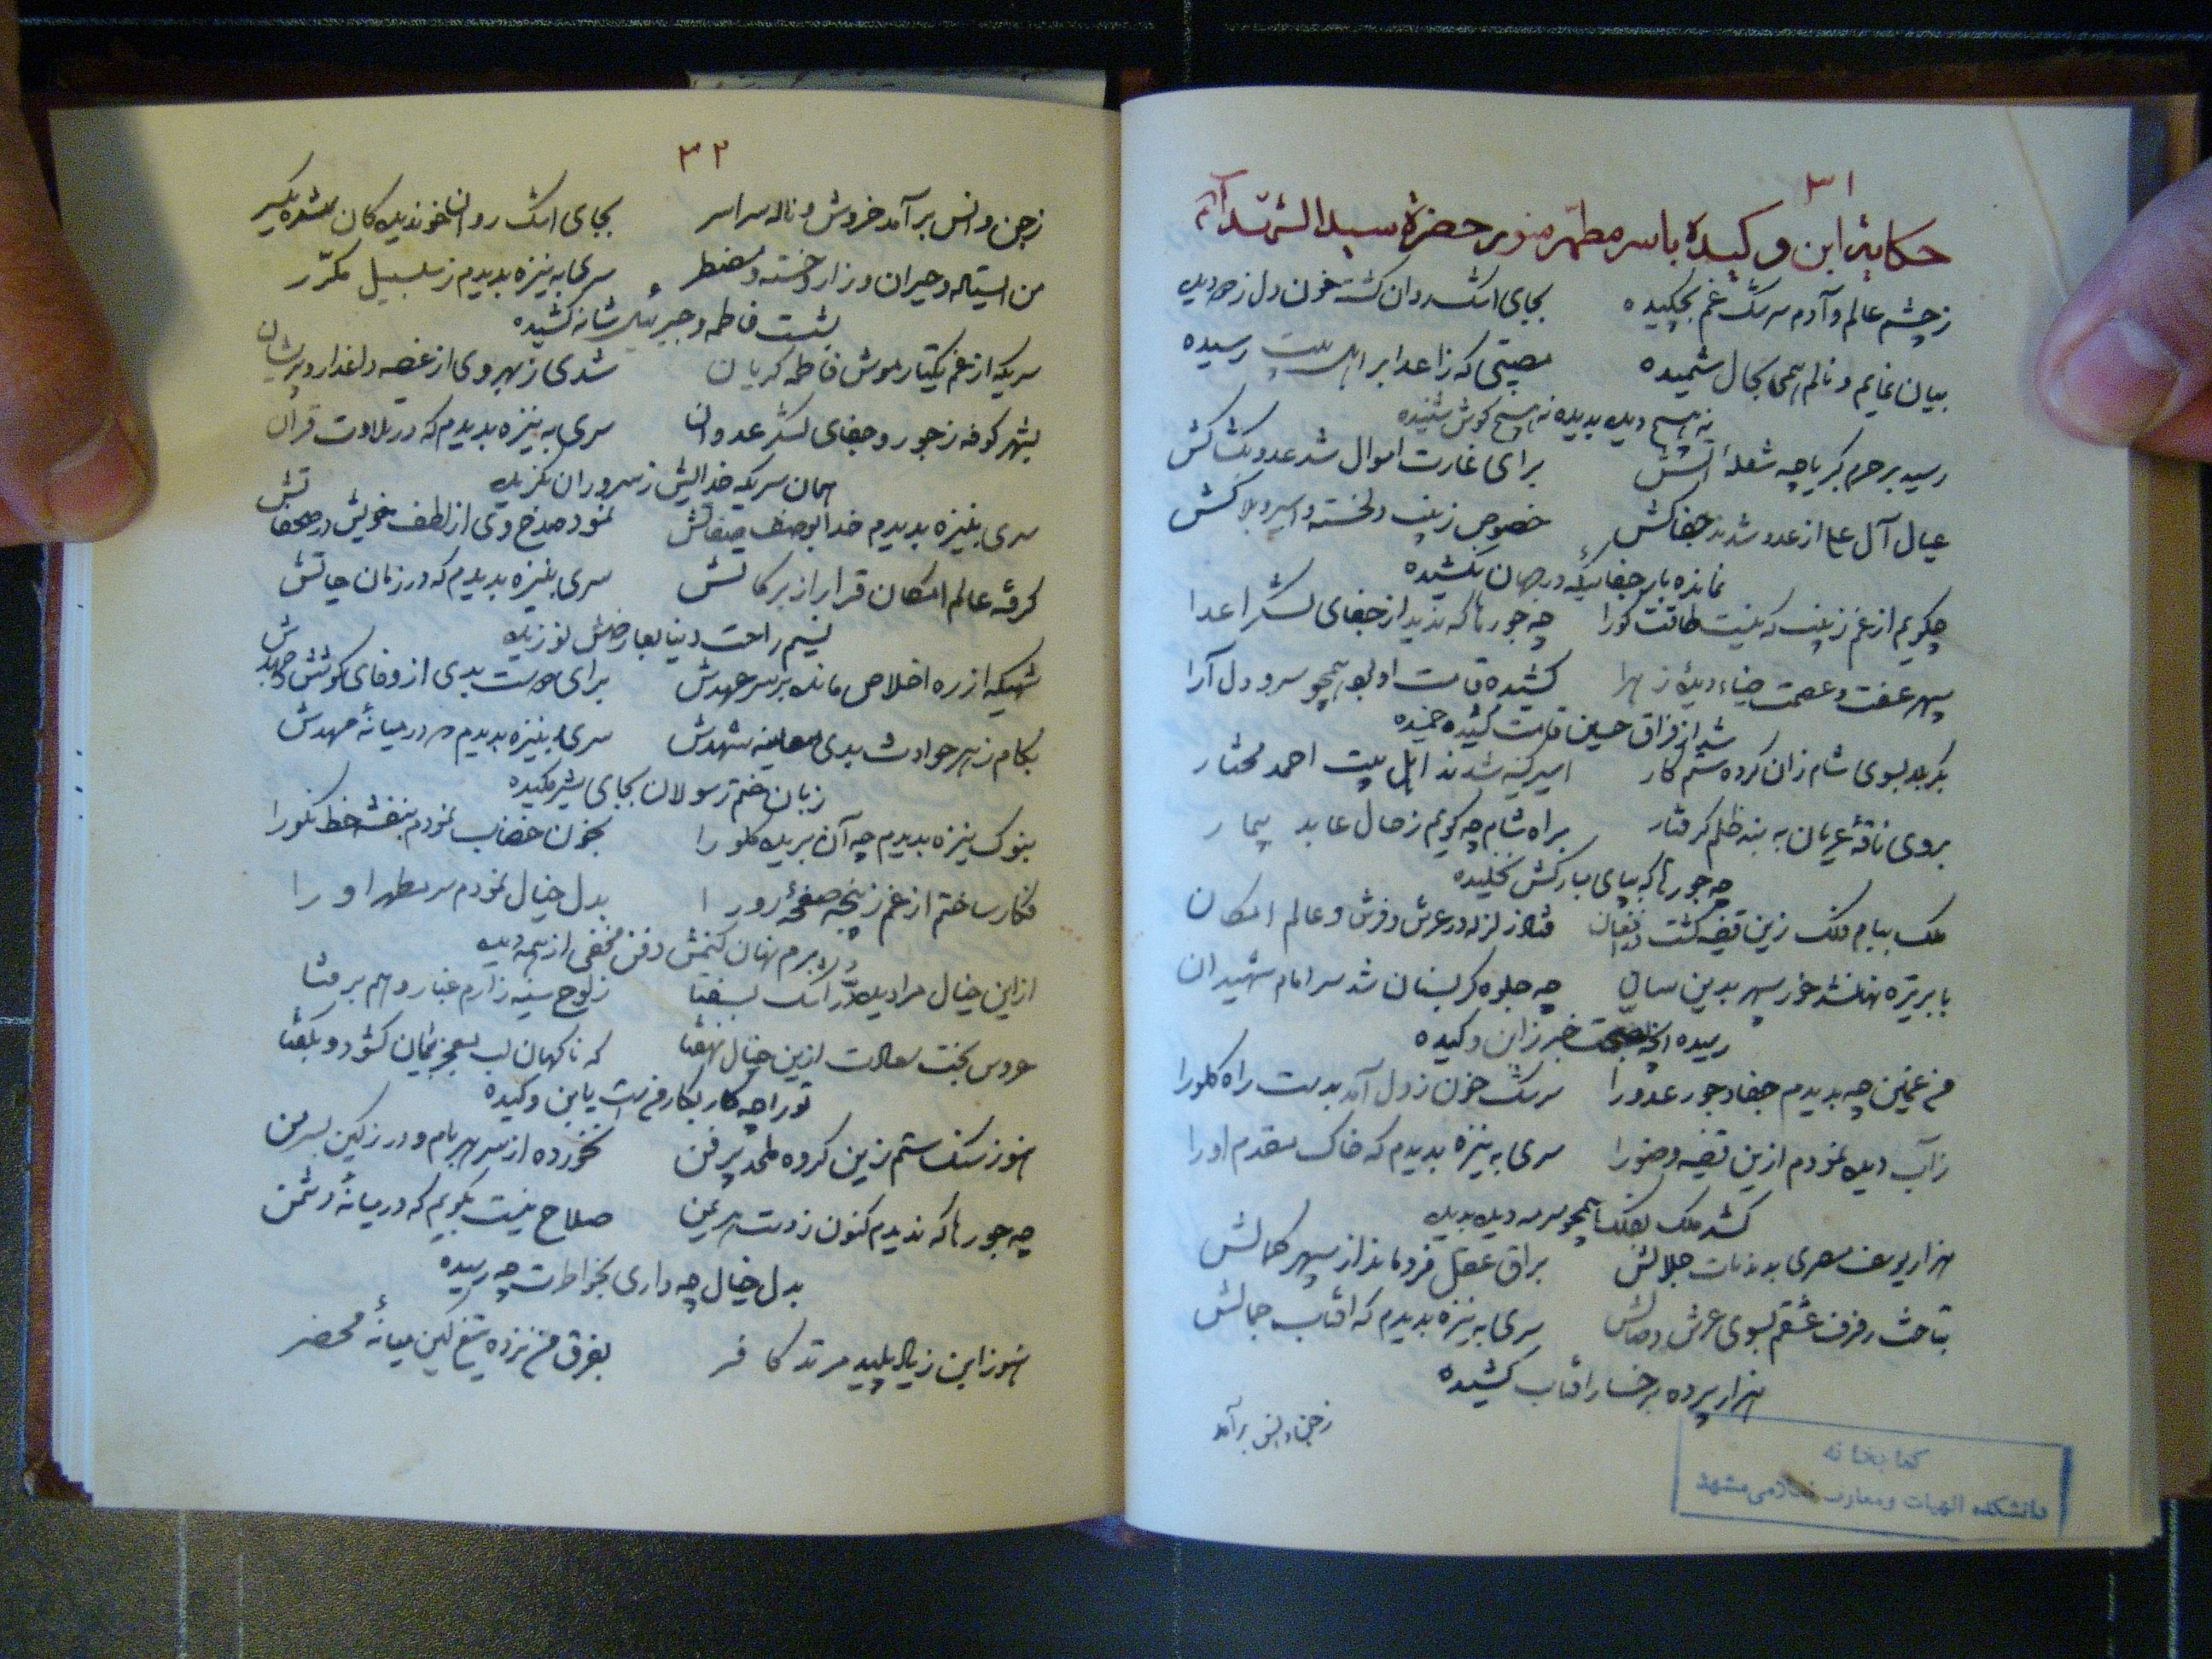 ۳۱
حکایة ابن وکیده با سر مطهر منور حضرة سید الشهدآء
زچشم عالم و آدم سرشک غم بچکیده بجای اشک روان کشته خون دل زدو دیده
بیان نمایم و نالم همی بحال شمیده مصیبتی که ز اعدا بر اهل بیت رسیده
نه هیچ دیده بدیده نه هیچ کوش شنیده
رسید بر حرم کبریا چه شعله آتش برای غارت اموال شد عدو بکشاکش
عیال آل علی از عدو شدند جفاکش خصوص زینب دلخسته و اسیر و بلاکش
نمانده بار جفائیکه در جهان نکشیده
چکویم از غم زینب که نیست طاقت کورا چه جورها که ندید از جفای لشکر اعدا
سپهر عفت و عصمت ضیاء دیدۀ زهرا کشیده قامت او بود همچو سرو دل آرا
شد از فراق حسین قامت کشیده خمیده
بکربلا بسوی شام زان کروه ستم کار اسیر کینه شدند اهل بیت احمد مختار
بروی ناقۀ عریان به بند ظلم کرفتار براه شام چه کویم ز حال عابد بیمار
چه جورها که بپای مبارکش نخلیده
ملک ببام فلک زین قضیه کشت در افغان فتاد زلزله در عرش و فرش و عالم امکان
با بر تیره نهان شد خور سپهر بدین سان چه جلوه کر بسنان شد سر امام شهیدان
رسیده خبر ز ابن وکیده
من غمین چه بدیدم جفا و جور عدو را سرشک خون ز دل آمد بدست راه کلورا
ز آب دیده نمودم ازین قضیه وضورا سری به نیزه بدیدم که خاک مقدم اورا
کشد ملک بفلک همچو سرمه دیده بدیده
هزار یوسف مصری بود مات جلالش براق عقل فرو ماند از سپهر کمالش
بتاخت رفرف عشقم بسوی عرش وصالش سری به نیزه بدیدم که افتاب جمالش
هزار پرده برخسار افتاب کشیده
زجن و انس برآمد
کتابخانه
دانشکده الهیات و معارف اسلامی مشهد
۳۲
زجن و انس برآمد خروش و ناله سراسر بجای اشک روان خون ز دیده کان
من ایستاده و حیران و زار و خسته و مضطر سری به نیزه بدیدم ز سلسبیل مکرّر
بشست فاطمه و جبرئیل شانه کشیده
سریکه از غم یکتار موش فاطمه کریان شدی زبهر وی از غصه داغدار و پریشان
بشهر کوفه ز جور و جفای لشکر عدوان سری به نیزه بدیدم که در تلاوت قرآن
همان سریکه خدایش ز سروران بکزیده
سری بنیزه بدیدم خدا بوصف صفاتش نمود مدح وی از لطف خویش در صحفاتش
کرفته عالم امکان قرار از برکاتش سری بنیزه بدیدم که در زمان حیاتش
نسیم راحت دنیا بعارضش نوزیده
شهیکه از ره اخلاص مانده بر سر عهدش برای امت بدی از وفای کوشش و جهدش
بکام زهر حوادث بدی معاینه شهدش سری بنیزه بدیدم که در میانۀ مهدش
زبان ختم رسولان بجای شیر مکیده
بنوک نیزه بدیدم چه آن بریده کلو را بخون خضاب نمودم بنفشه خط نکورا
فکار ساختم از غم ز پنجه صفحۀ رورا بدل خیال نمودم سر مطهر اورا
برم نهان کنمش دفن مخفی از همه دیده
از این خیال مرا دیده درّ اشک بسفتا ز لوح سینه زارم غبار وهم برفتا
عروس بخت سعادت ازین خیال نهفتا که ناکهان لب معجز نمان کشود و بکفتا
تو را چه کار بکار من است یابن وکیده
هنوز سنک ستم زین کروه ملحد پرفن نخورده از سر هر بام و در ز کین بسر من
چه جورها که ندیدم کنون ز دست صلاح نیست بکویم که در میانۀ دشمن
بدل خیال چه داری بخواطرت چه رسیده
هنوز ابن زیاد پلید مرتد کافر بفرق من نزده تیغ کین میانۀ محضر